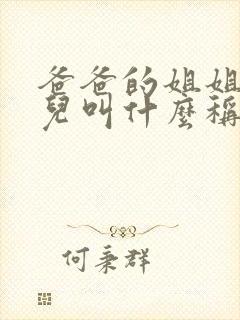 爸爸的姐姐
兒叫什麼稱
何秉群